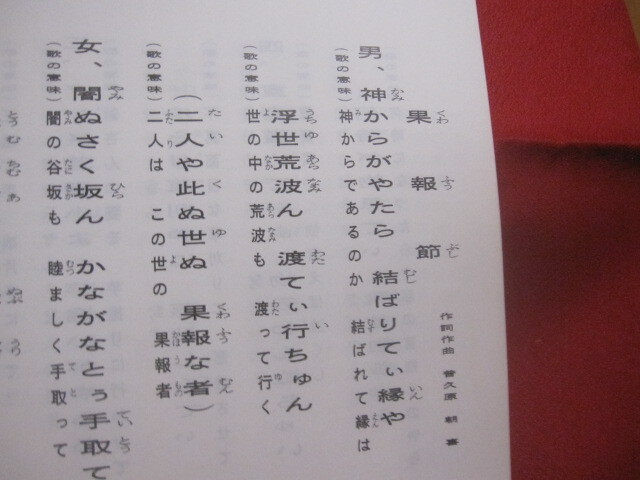 果報節
作詞作曲 普久原 朝喜
男、神からがやたら 結ばりてぃ縁や
(歌の意味)神からであるのか 結ばれて縁は
浮世荒波ん 渡てぃ行ちゅん
(歌の意味)世の中の荒波も 渡って行く
(二人や此ぬ世ぬ 果報な者)
(歌の意味)二人は この世の 果報者
女、闇ぬさく坂ん かながなとぅ手取て
(歌の意味)闇の谷坂も 睦ましく手取って